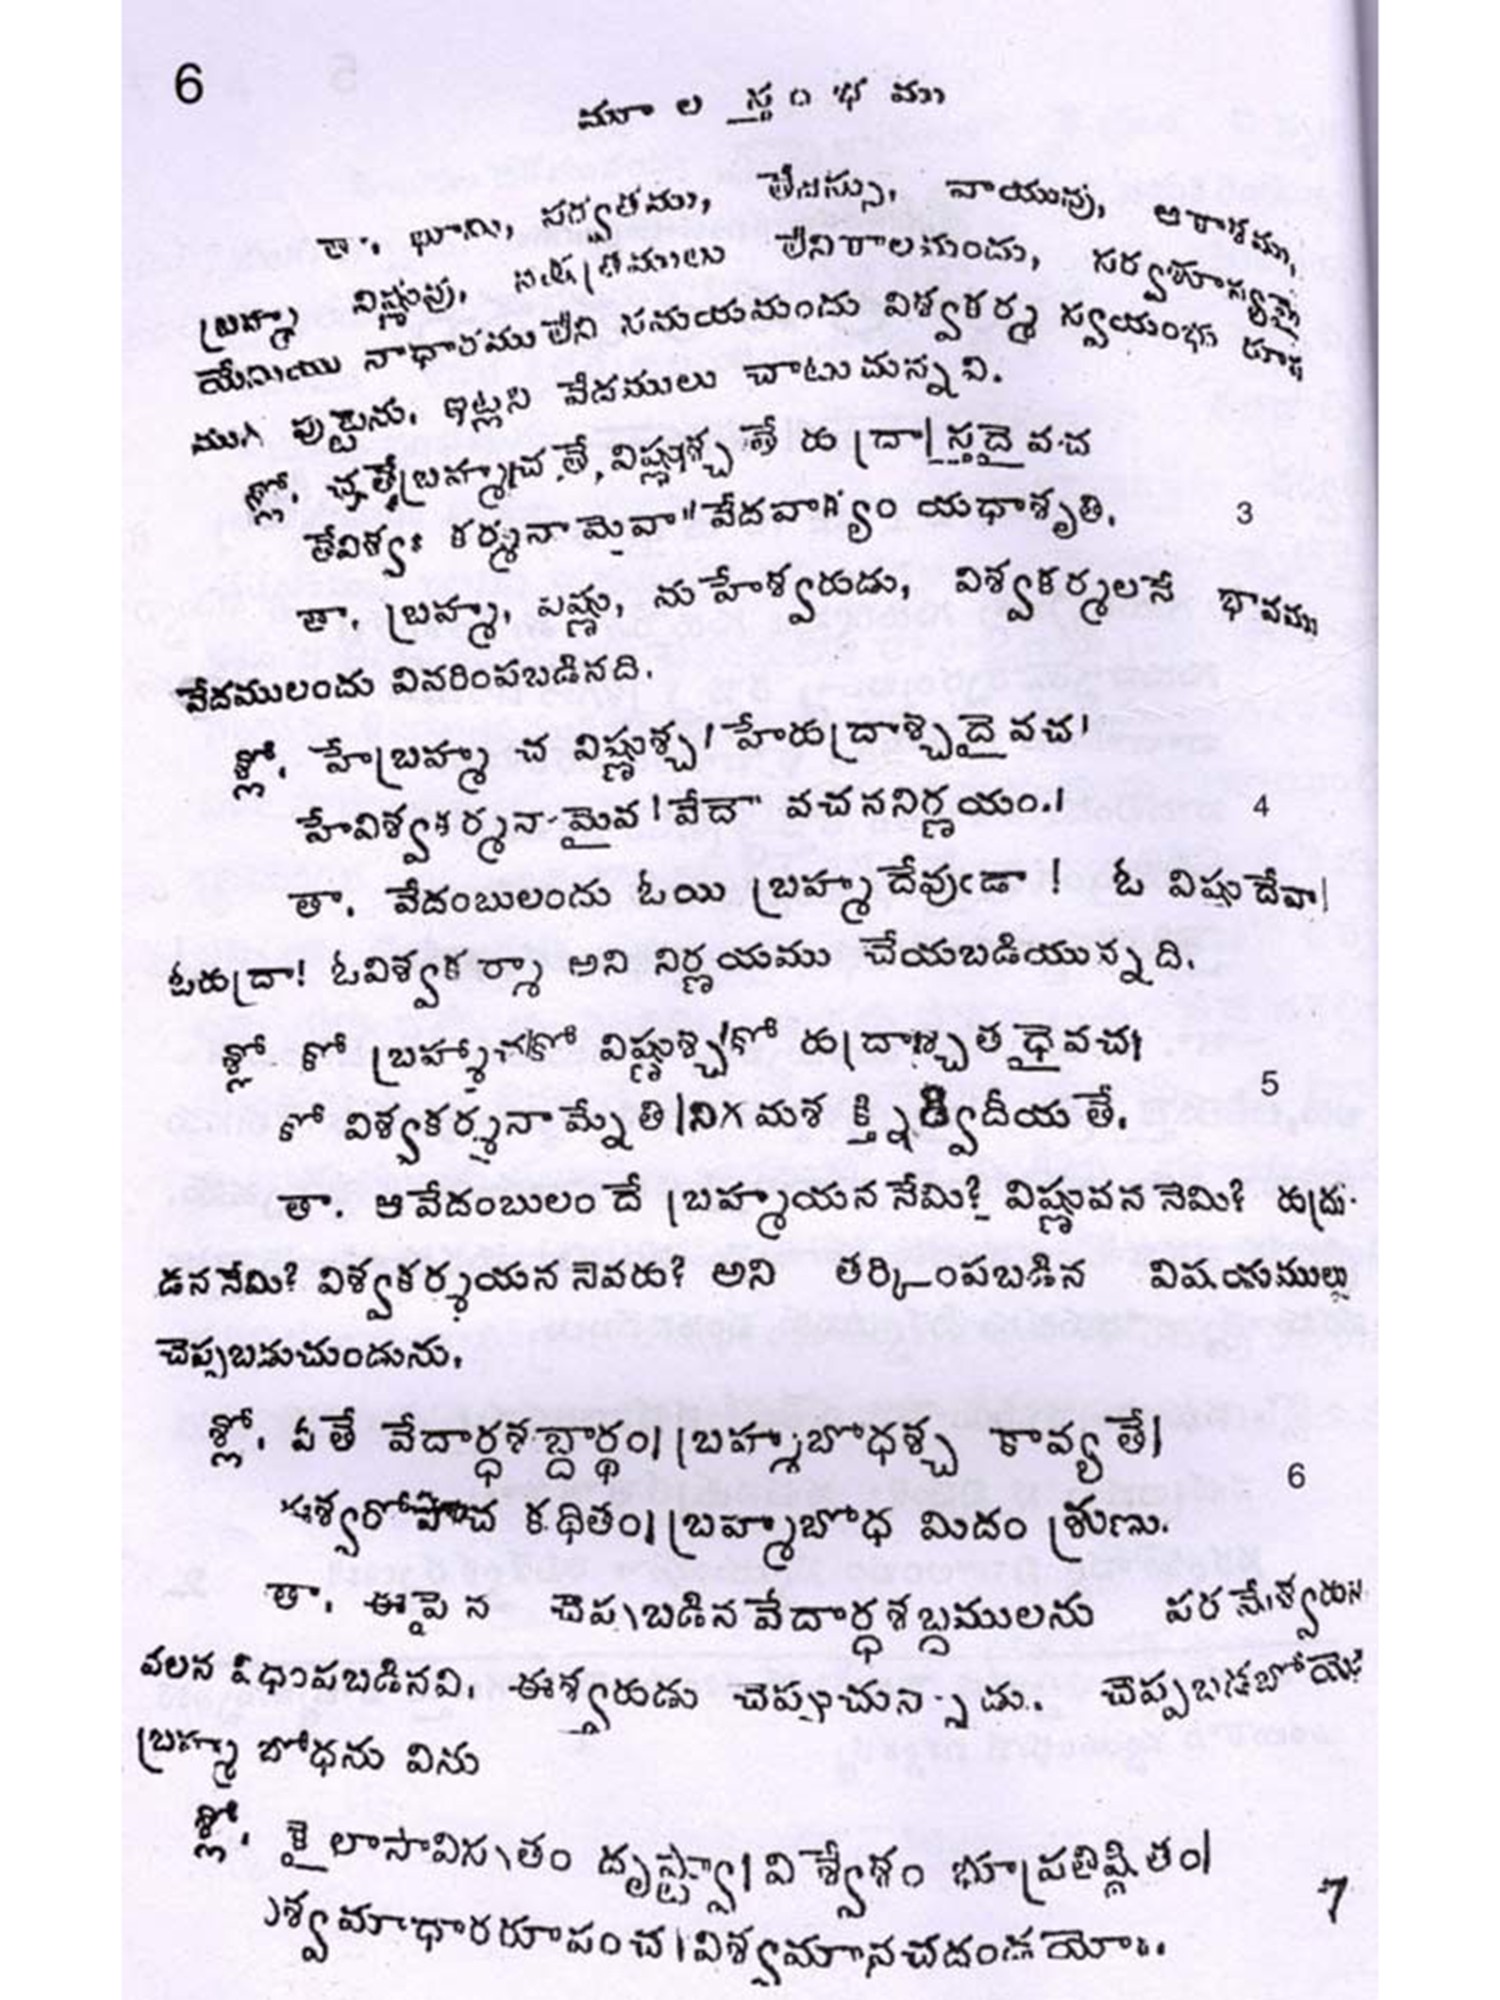 6
మూల స్తంభము
తా. భూమి, పర్వతము, తేజస్సు, వాయువు, ఆకాశము,
బ్రహ్మ విష్ణువు, నక్షత్రములు లేనికాలమందు, సర్వశూన్యమై
యేమియు నాధారములేని సమయమందు విశ్వకర్మ స్వయంభూ రూప
ముగ పుట్టెను. ఇట్లని వేదములు చాటుచున్నవి.
శ్లో. బ్రహ్మాచ తే, విష్ణుశ్చ తే రు ద్రా స్తదై వచ
తేవిశ్వః కర్మనా మైవా" వేదవాక్యం యధాశృతి. 3
తా. బ్రహ్మ, విష్ణు, మహేశ్వరుడు, విశ్వకర్మలనే భావము
వేదములందు వివరింపబడినది.
శ్లో. హేబ్రహ్మ చ విష్ణుశ్చ। హేరుద్రాశ్చదై వచ।
హేవిశ్వకర్మనా మైవ। వేదా వచననిర్ణయం.। 4
తా. వేదంబులందు ఓయి బ్రహ్మదేవుఁడా ! ఓ విష్ణుదేవా।
ఓరుద్రా! ఓవిశ్వకర్మా అని నిర్ణయము చేయబడియున్నది.
శ్లో కో బ్రహ్మాచ।కో విష్ణుశ్చ।కో రుద్రాశ్చత ధైవచ।
కో విశ్వకర్మనామ్నేతి।నిగమశ క్తిని 5
తా. ఆ వేదంబులం దే బ్రహ్మయన నేమి? విష్ణువన నెమి? రుద్రు-
డన నేమి? విశ్వకర్మయన నెవరు? అని తర్కింపబడిన విషయములు
చెప్పబడుచుండును.
శ్లో. ఏ తే వేదార్ధశబ్దార్థం। బ్రహ్మబోధశ్చ కావ్య తే।
కథితం। బ్రహ్మబోధ మిదం శ్రుణు. 6
తా. ఈపై న చెప్పబడిన వేదార్ధశబ్దములను పరమేశ్వరుని
వలన విధింపబడినవి. ఈశ్వరుడు చెప్పుచున్నాడు. చెప్పబడబోయెడి
బ్రహ్మ బోధను విను
శ్లో. కై లాసా దృష్ట్వా। విశ్వేశం భూప్రతిష్ఠితం।
విశ్వమాధారరూపంచ। 7